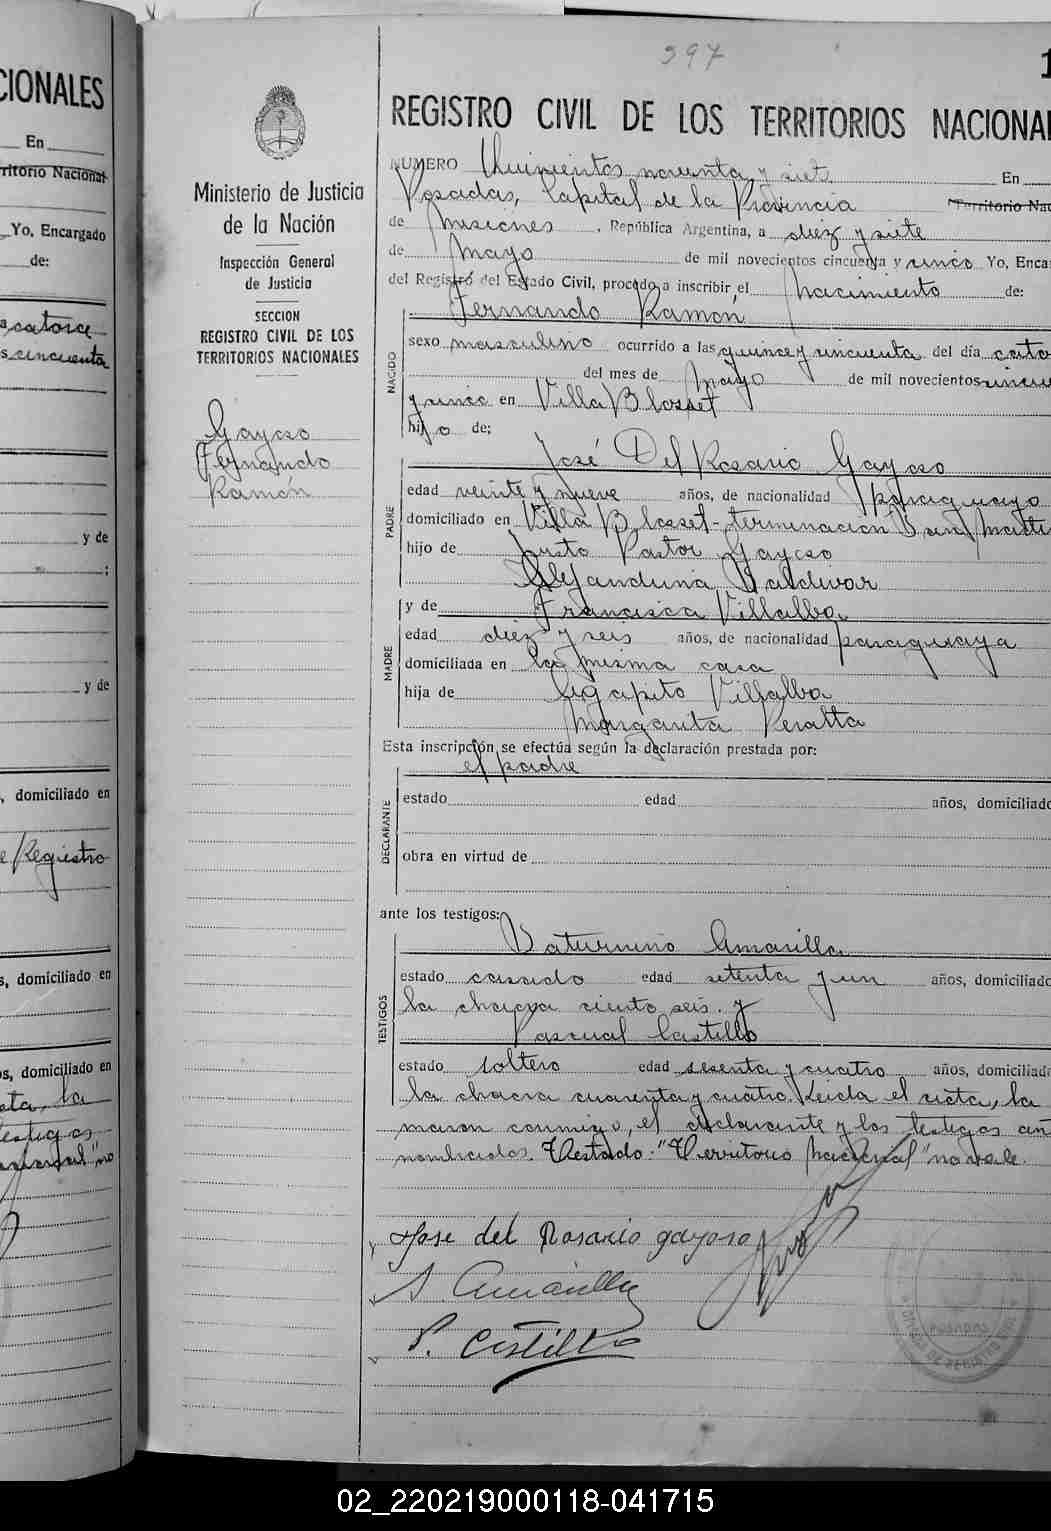 CIONALES
En
rritorio Nacional
Yo, Encargado
de:
a catorce
s cincuenta
y de
;
y de
, domiciliado en
e Registro
s, domiciliado en
os, domiciliado en
cta, la
testigos
nacional" no
Ministerio de Justicia
de la Nación
Inspección General
de Justicia
SECCION
REGISTRO CIVIL DE LOS
TERRITORIOS NACIONALES
Gayoso
Fernando
Ramón
597
1
REGISTRO CIVIL DE LOS TERRITORIOS NACIONA
NUMERO Quinientos noventa y siete En
Posadas, Capital de la Provincia Territorio Nac
de Misiones, República Argentina, a diez y siete
de Mayo de mil novecientos cincuenta y cinco Yo, Enca
del Registro del Estado Civil, procedo a inscribir el nacimiento de:
Fernando Ramón
NACIDO
sexo masculino ocurrido a las quince y cincuenta del día cato
del mes de Mayo de mil novecientos cincue
y cinco en Villa Blosset
hijo de;
José Del Rosario Gayoso
PADRE
edad veinte y nueve años, de nacionalidad paraguayo
domiciliado en Villa Blosset - terminación San Martí
hijo de Justo Pastor Gayoso
Alejandrina Baldivar
y de Francisca Villalba
MADRE
edad diez y seis años, de nacionalidad paraguaya
domiciliada en la misma casa
hija de Agapito Villalba
Margarita Peralta
Esta inscripción se efectúa según la declaración prestada por:
el padre
DECLARANTE
estado edad años, domiciliado
obra en virtud de
ante los testigos:
Saturnino Amarilla
TESTIGOS
estado casado edad setenta y un años, domiciliado
la chacra ciento seis. y
Pascual Castillo
estado soltero edad sesenta y cuatro años, domiciliado
la chacra cuarenta y cuatro. Leida el acta, la
maron conmigo, el declarante y los testigos ant
nombrados. Testado: "Territorio Nacional" no vale.
Jose del Rosario gayoso
S Amarilla
P. Castillo
POSADAS
02_220219000118-041715